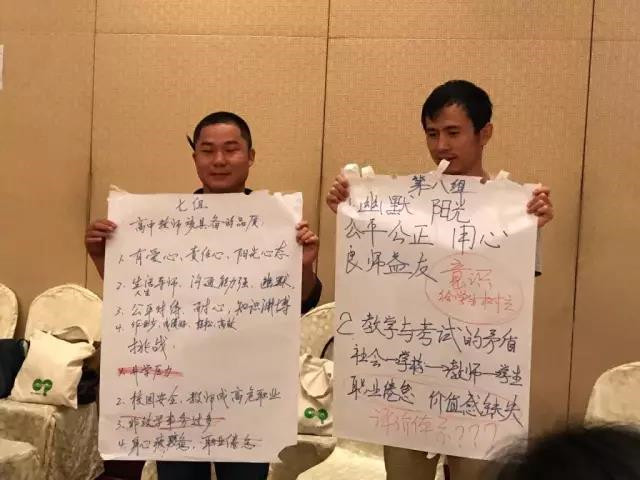 七组
高中教师须具备的品质:
1. 有爱心、责任心、阳光心态
2. 生活导师、沟通能力强、幽默、
人生
3. 公平对待、耐心、知识渊博
4.
挑战:
1. 升学压力
2. 校园安全、教师成高危职业
3. 非教学事务过多
4. 身心疲惫、职业倦怠
第八组
1. 幽默 阳光
公平公正 用心
良师益友
意识
2 教学与考试的矛盾
社会→学校→教师→学生
职业倦怠 价值感缺失
评价体系???